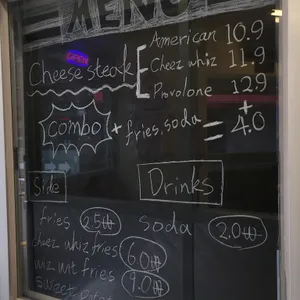 MENU
OPEN
American 10.9
Cheese steak Cheez whiz 11.9
Provolone 12.9
Combo + fries, soda = + 4.0
Side Drinks
fries 2.5 soda 2.0
cheez whiz fries 6.0
wiz wit fries 9.0
sweet